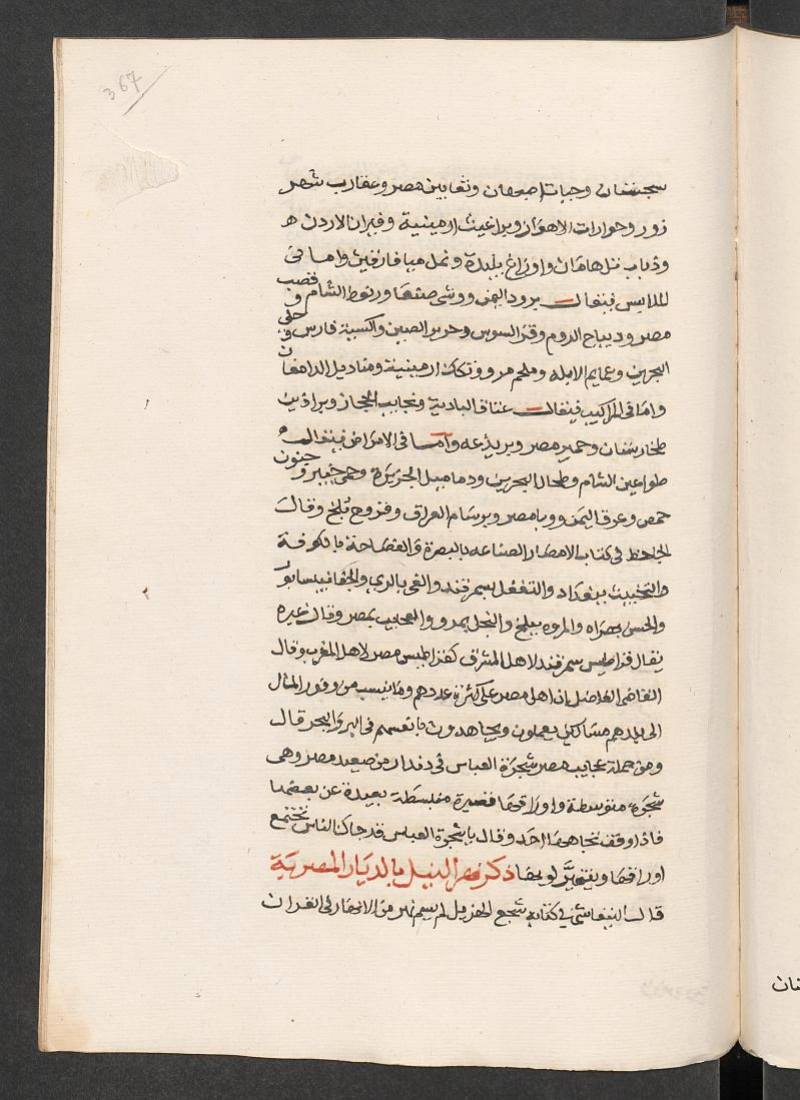 367
سجستان وحيات اصبهان وثعابين مصر وعقارب شهر
زور وجوارات الاهواز وبراغيث ارمينية وفيران الاردن ه
وذباب تل هامان واوزاغ بلبدة ونمل ميافارقين واما في
الملابس فيقال برود اليمن ووشى صنعا وريط الشام وقصب
مصر وديباج الروم وقز السوس وحرير الصين واكسية فارس وحلي
البحرين وعمايم الابله وملحم مرو وتكك ارمينية ومناديل الدامغان
واما في المراكيب فيقال عتاق البادية ونجايب الحجاز وبراذين
طخارستان وحمير مصر وبريذعه واما في الامراض فيقال
طواعين الشام وطحال البحرين ودماميل الجزيرة وحمى خيبر وجنون
حمص وعرق اليمن ووبا مصر وبرسام العراق وقروح بلخ وقالت
الجاحظ في كتاب الامصار الصناعه بالبصرة والفصاحة بالكوفة
والتخنيث ببغداد والتفعل بسمرقند والغى بالري والجفا بنيسابور
والحسن بهراه والمروه ببلخ والبخل بمرو والعجايب بمصر وقال غيره
يقال قراطيس سمرقند لاهل المشرق كقراطيس مصر لاهل المغرب وقال
القاضى الفاضل ان اهل مصر على كثرة عددهم وما ينسب من وفور المال
الى بلدهم مساكين يعملون ويجاهدون بانفسهم في البر والبحر قال
ومن جملة عجايب مصر شجرة العباس في دندار من صعيد مصر وهي
شجرة متوسطة واوراقها قصيرة منبسطة بعيدة عن بعضها
فاذا وقف تجاهها احد وقال يا شجرة العباس قد جاك الناس تجتمع
اوراقها ويتغير لونها ذكر نهر النيل بالديار المصرية
قال التيفاشي في كتابه سجع الهديل لم يسم نهر من الانهار في القران